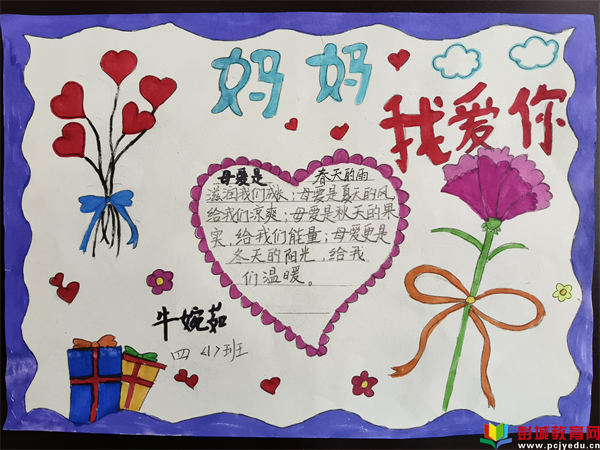 妈妈
我爱你
母爱是 春天的雨
滋润我们成长；母爱是夏天的风，
给我们凉爽；母爱是秋天的果
实，给我们能量；母爱更是
冬天的阳光，给我
们温暖。
牛婉茹
四〈1〉班
彭城教育网
www.pcjyedu.cn